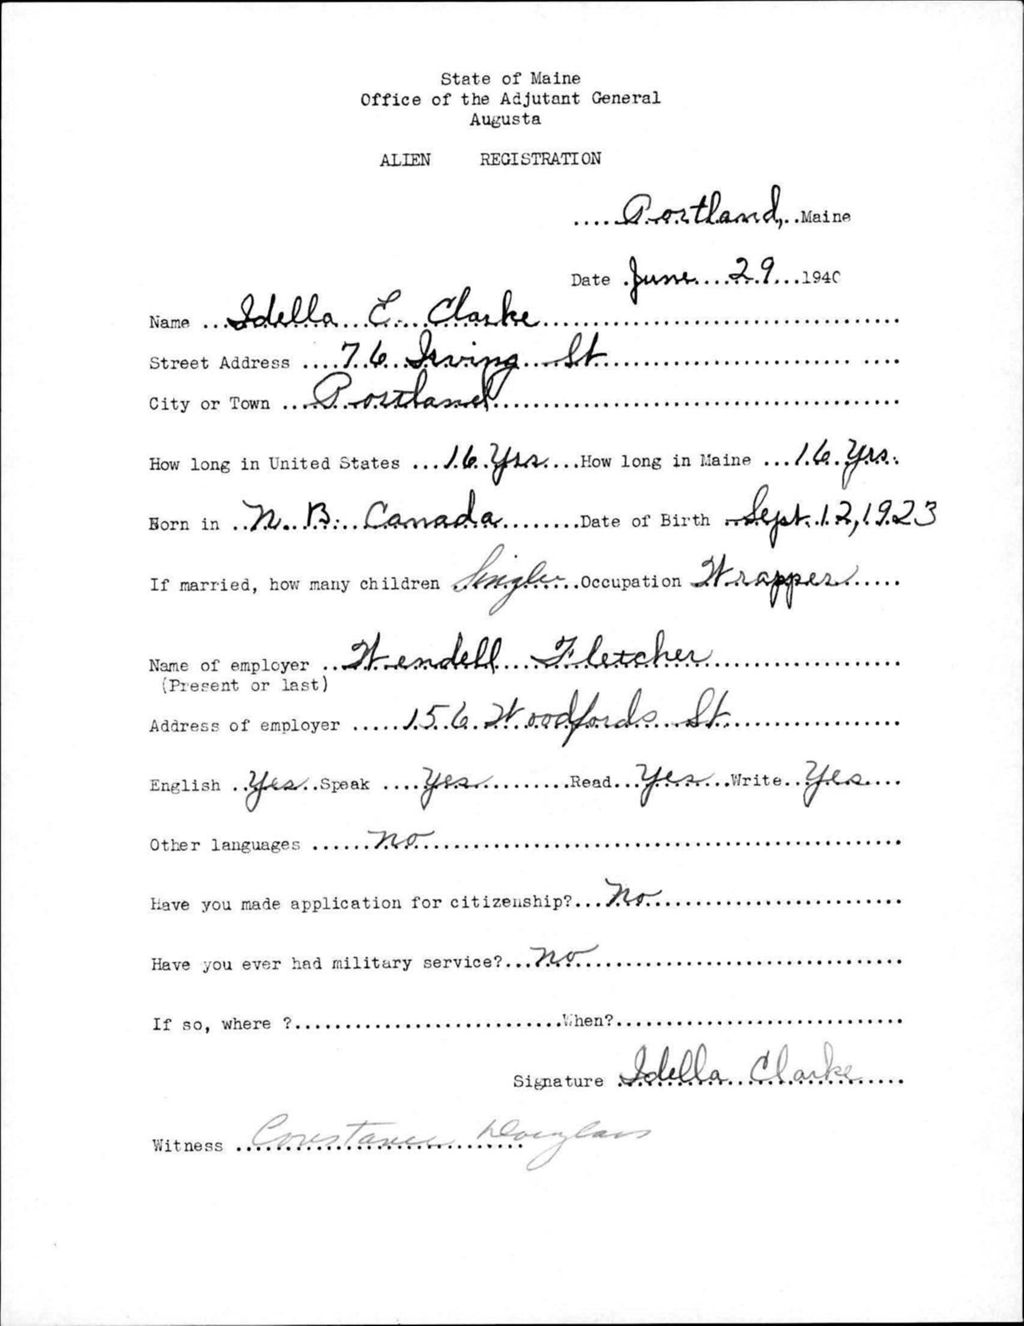 State of Maine
Office of the Adjutant General
Augusta
ALIEN REGISTRATION
.....Portland,..Maine
Date .June....29...1940
Name ...Idella...E....Clarke....................................
Street Address ....76 Irving St..............................
City or Town ...Portland.........................................
How long in United States ...16 Yrs....How long in Maine ...16 Yrs.
Born in ..N. B. Canada........Date of Birth ..Sept. 12, 1923
If married, how many children Single...Occupation Wrapper.....
Name of employer ..Wendell....Fletcher...................
(Present or last)
Address of employer .....156 Woodfords St.................
English ..Yes..Speak ....Yes.........Read...Yes...Write..Yes....
Other languages ......no...............................................
Have you made application for citizenship?...No.........................
Have you ever had military service?...no................................
If so, where ?...........................When?.............................
Signature .Idella Clarke.....
Witness ..Constance Douglass